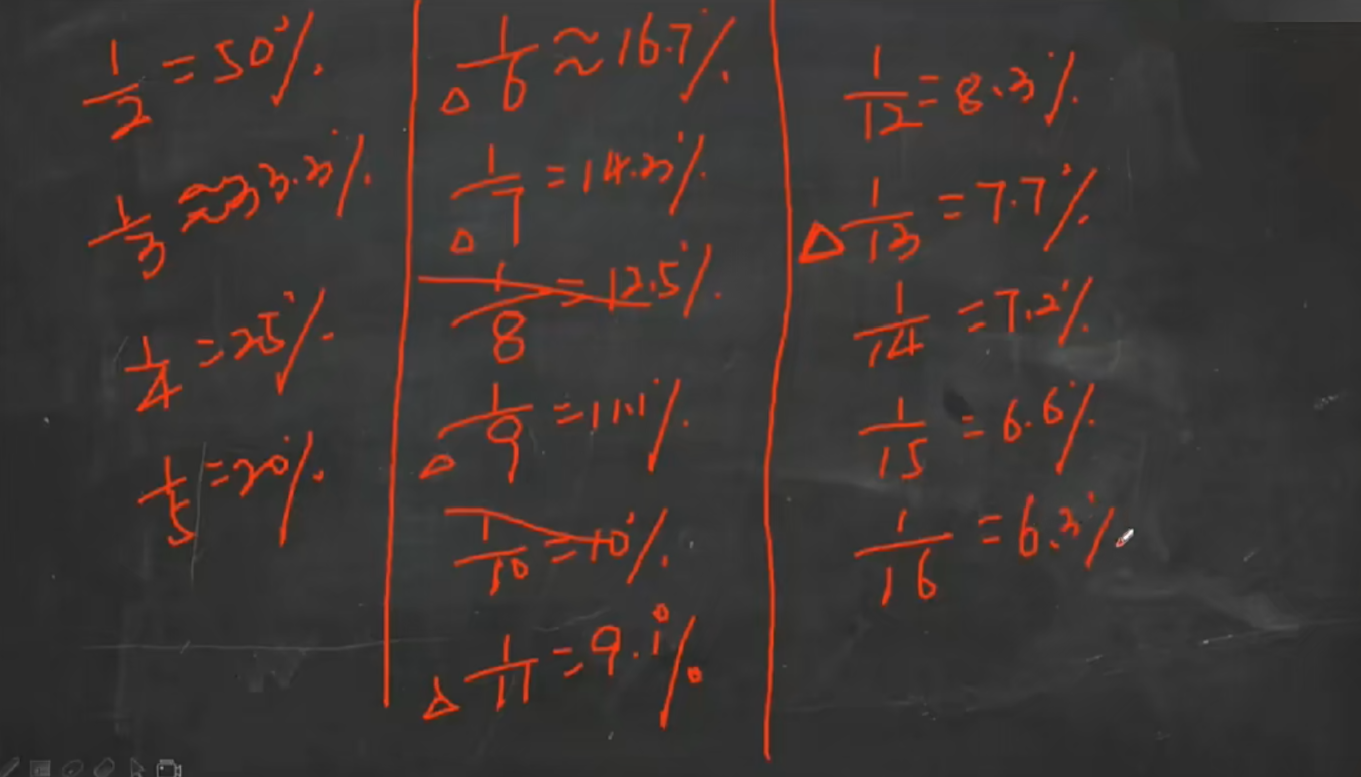 1/2 = 50%
1/3 ≈ 33.3%
1/4 = 25%
1/5 = 20%
△ 1/6 ≈ 16.7%
△ 1/7 = 14.3%
1/8 = 12.5%
△ 1/9 = 11.1%
1/10 = 10%
△ 1/11 = 9.1%
1/12 = 8.3%
△ 1/13 = 7.7%
1/14 = 7.2%
1/15 = 6.6%
1/16 = 6.3%